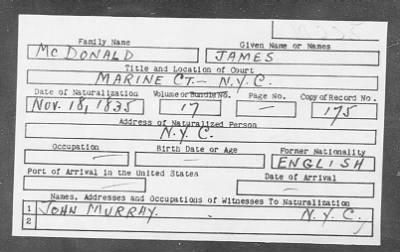 Family Name Given Name or Names
McDONALD JAMES
Title and Location of Court
MARINE CT. — N.Y.C.
Date of Naturalization Volume or Bundle No. Page No. Copy of Record No.
Nov. 18, 1835 17 — 175
Address of Naturalized Person
N.Y.C.
Occupation Birth Date or Age Former Nationality
— — ENGLISH
Port of Arrival in the United States Date of Arrival
— —
Names, Addresses and Occupations of Witnesses To Naturalization
1 JOHN MURRAY. N.Y.C.
2